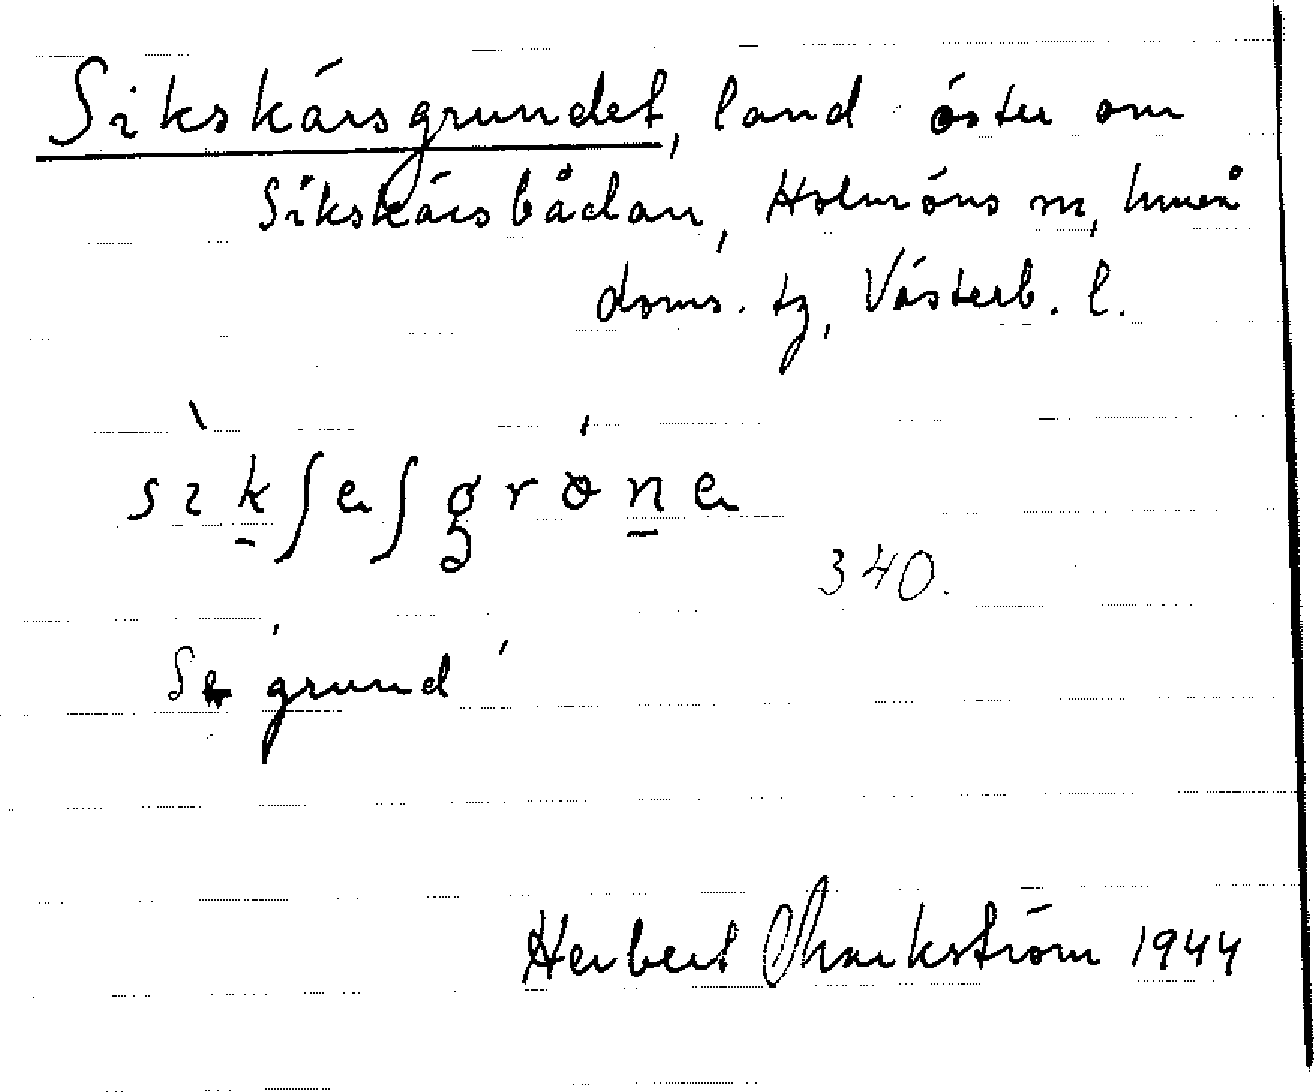 Sikskärsgrundet, land öster om
Sikskärsbådan, Holmöns sn, Umeå
doms. tg, Västerb. l.
340.
Se grund
Herbert Markström 1944